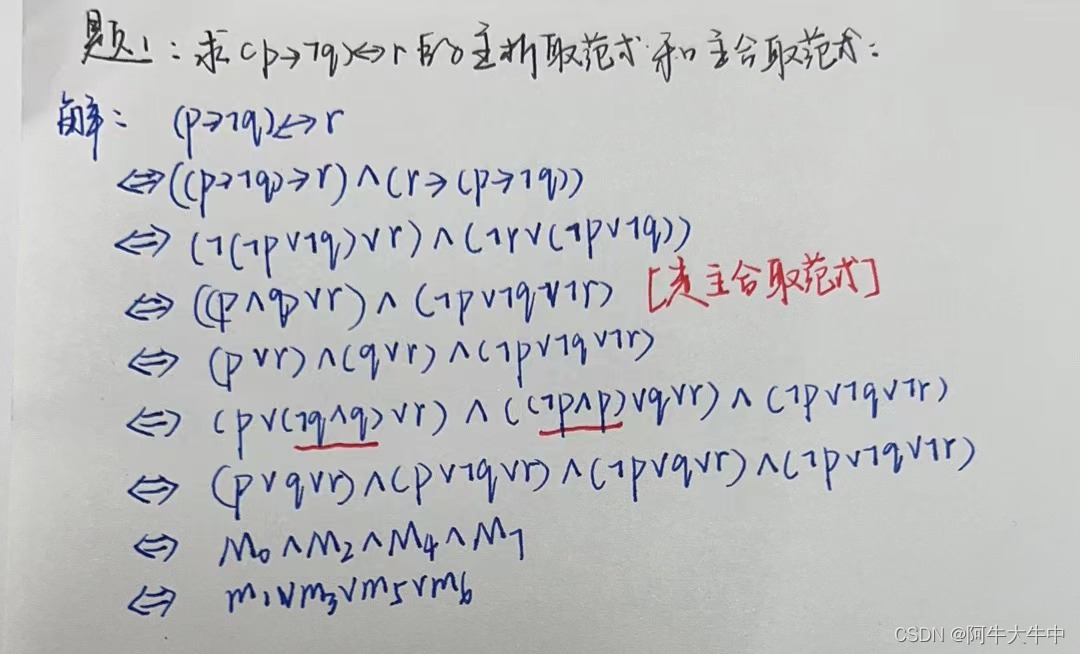 题1:求(p→¬q)↔r的主析取范式和主合取范式:
解: (p→¬q)↔r
⇔((p→¬q)→r)∧(r→(p→¬q))
⇔(¬(¬p∨¬q)∨r)∧(¬r∨(¬p∨¬q))
⇔((p∧q)∨r)∧(¬p∨¬q∨¬r) [类主合取范式]
⇔(p∨r)∧(q∨r)∧(¬p∨¬q∨¬r)
⇔(p∨(¬q∧q)∨r)∧((¬p∧p)∨q∨r)∧(¬p∨¬q∨¬r)
⇔(p∨q∨r)∧(p∨¬q∨r)∧(¬p∨q∨r)∧(¬p∨¬q∨¬r)
⇔ M₀∧M₂∧M₄∧M₇
⇔ m₁∨m₃∨m₅∨m₆
CSDN @阿牛大牛中